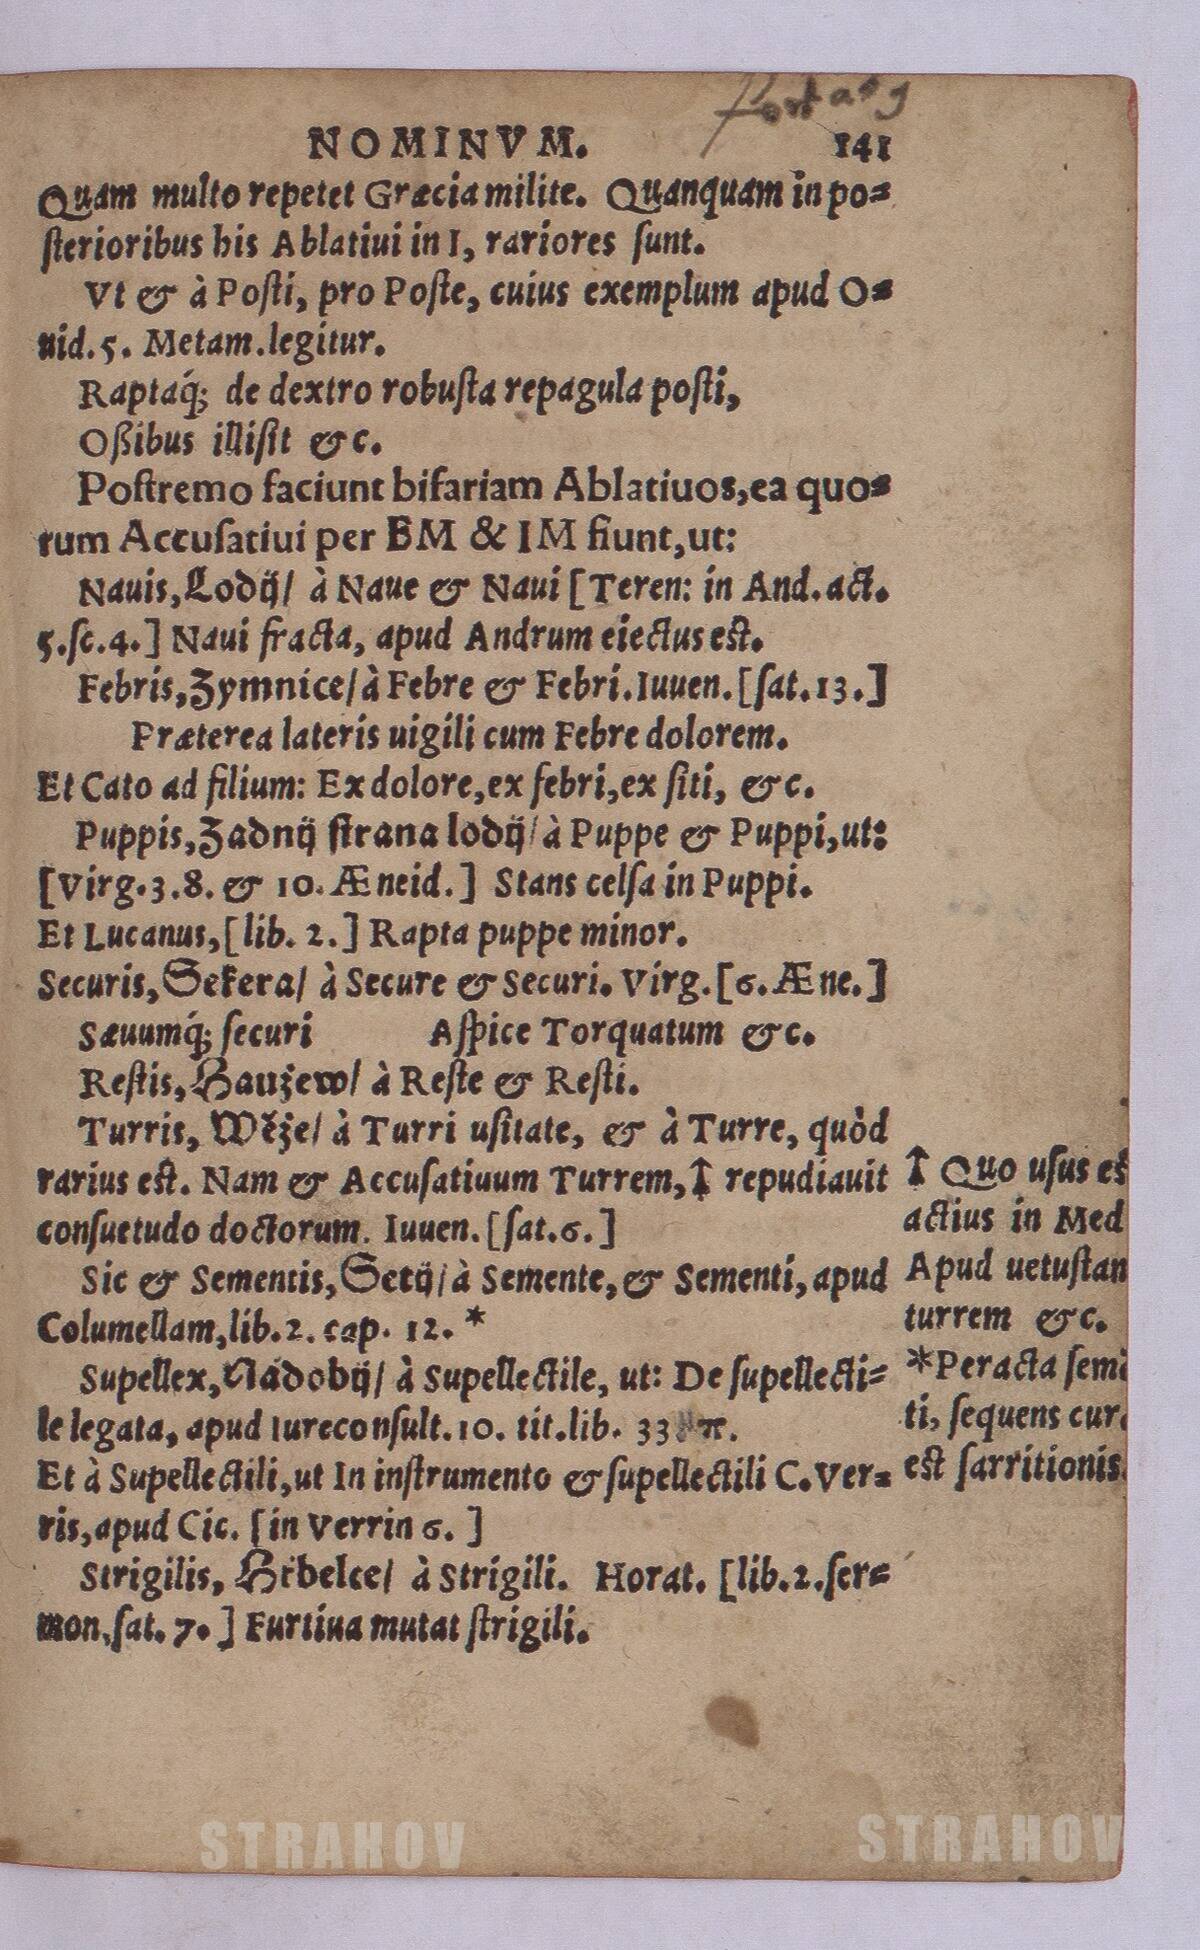 NOMINVM. 141
Quam multo repetet Græcia milite. Quanquam in po-
ſterioribus his Ablatiui in I, rariores ſunt.
Vt & à Poſti, pro Poſte, cuius exemplum apud O-
uid. 5. Metam. legitur.
Raptaq́; de dextro robuſta repagula poſti,
Oßibus illiſit &c.
Poſtremo faciunt bifariam Ablatiuos, ea quo-
rum Accuſatiui per EM & IM fiunt, ut:
Nauis, Lodij/ à Naue & Naui [Teren: in And. act.
5. ſc. 4.] Naui fracta, apud Andrum eiectus eſt.
Febris, Zymnice/ à Febre & Febri. Iuuen. [ſat. 13.]
Præterea lateris uigili cum Febre dolorem.
Et Cato ad filium: Ex dolore, ex febri, ex ſiti, &c.
Puppis, Zadnij ſtrana lodij/ à Puppe & Puppi, ut:
[Virg. 3. 8. & 10. Æneid.] Stans celſa in Puppi.
Et Lucanus, [lib. 2.] Rapta puppe minor.
Securis, Sekera/ à Secure & Securi. Virg. [6. Æne.]
Sæuumq́; ſecuri Aſpice Torquatum &c.
Reſtis, Haužew/ à Reſte & Reſti.
Turris, Wěže/ à Turri uſitate, & à Turre, quòd
rarius eſt. Nam & Accuſatiuum Turrem, ↑ repudiauit
conſuetudo doctorum. Iuuen. [ſat. 6.]
Sic & Sementis, Setij/ à Semente, & Sementi, apud
Columellam, lib. 2. cap. 12. *
Supellex, Nádobij/ à Supellectile, ut: De ſupellecti-
le legata, apud Iureconſult. 10. tit. lib. 33 π.
Et à Supellectili, ut In inſtrumento & ſupellectili C. Ver-
ris, apud Cic. [in Verrin 6.]
Strigilis, Hřbelce/ à Strigili. Horat. [lib. 2. ſer-
mon. ſat. 7.] Furtiua mutat ſtrigili.
↑ Quo uſus eſt
actius in Med
Apud uetuſtam
turrem &c.
*Peracta ſemẽ
ti, ſequens cur
eſt ſarritionis.
STRAHOV STRAHOV